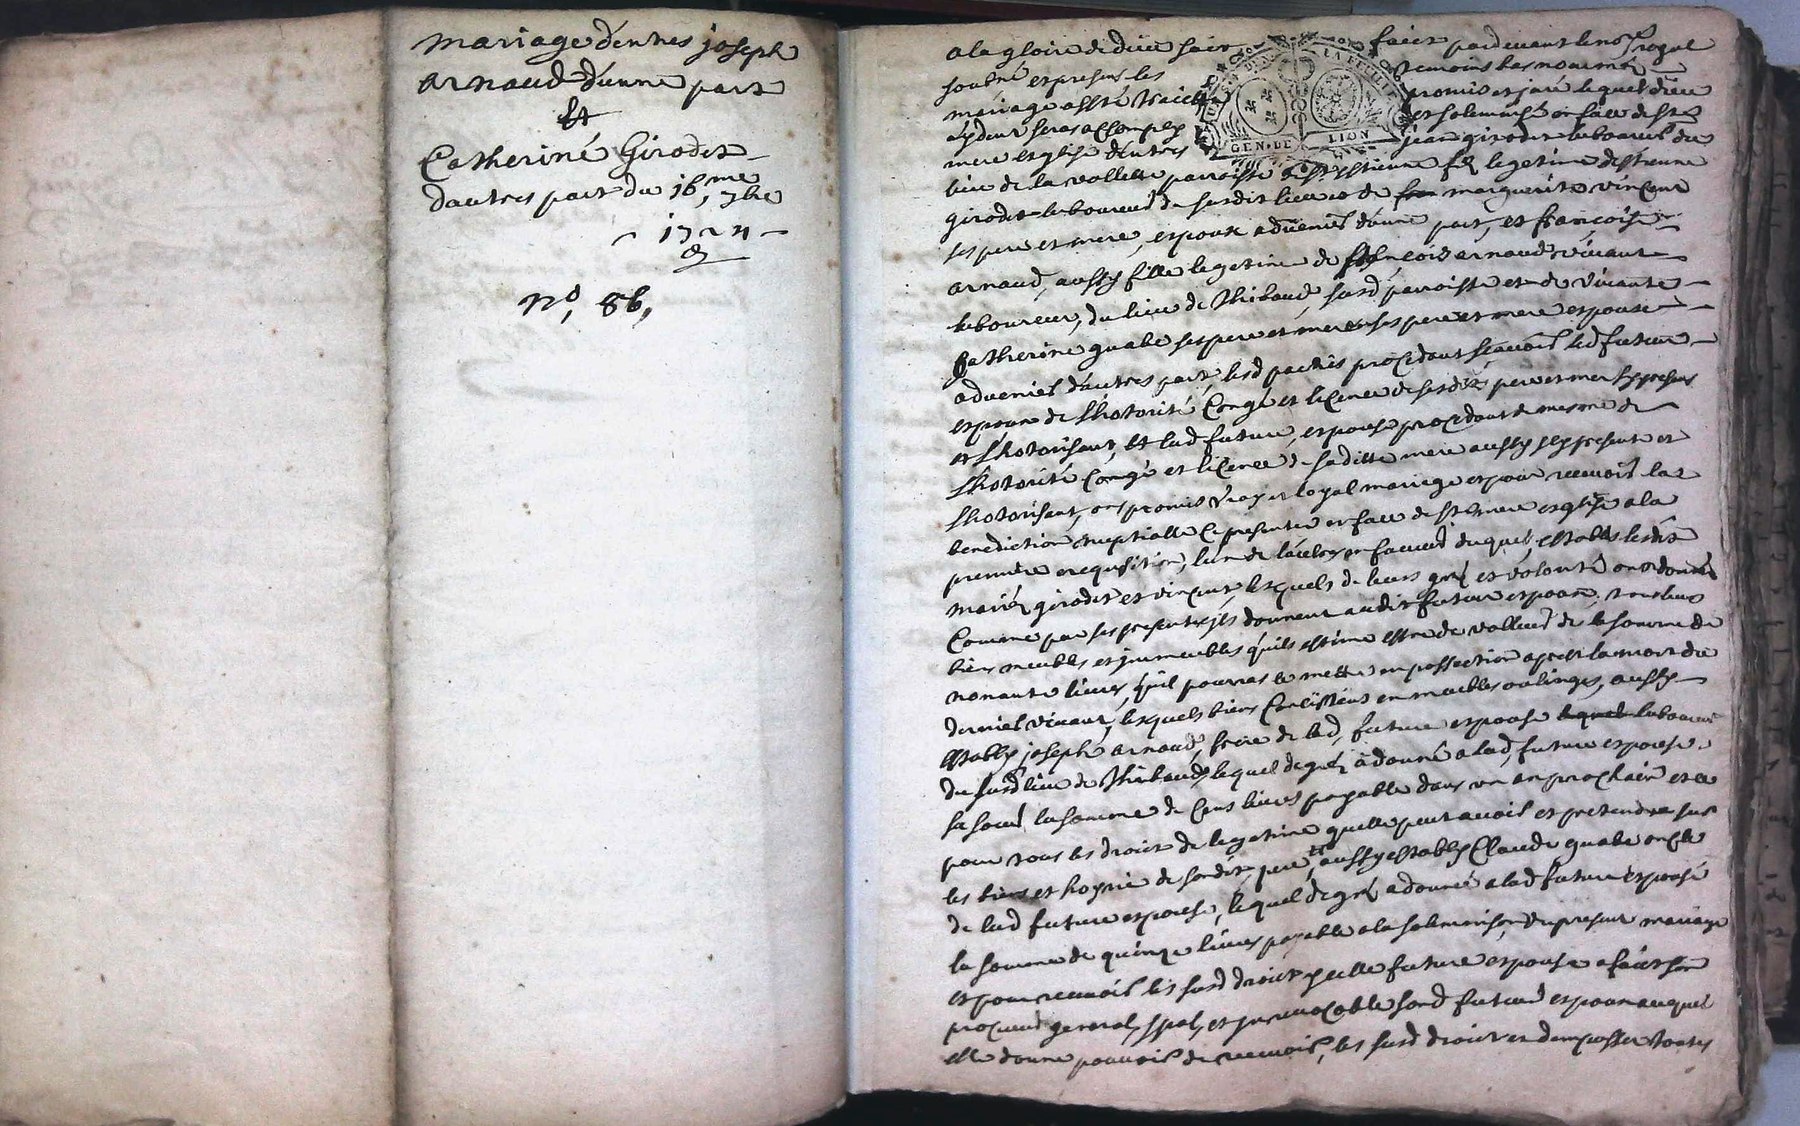 mariage d'entres joseph
arnaud d'une part
Et
Catherine Girodet
d'autres part du 16.me 7bre
1724
No, 86,
a la gloire de dieu soit faict pardevant le no.re royal
soubné et presens les temoins bas nommés
mariage a esté traicté promis et juré lequel dieu
aydant seras accomply et solemnisé en face de ste
mere esglise d'entres jean girodet laboureur du
lieu de la vallette parroisse de st estienne fils legetime d'estienne
girodet laboureur du susdit lieu et de marguerite vincent
ses pere et mere, espoux advenir d'une part, et françoise
arnaud, aussy fille legetime de françois arnaud vivant
laboureur, du lieu de Thibaud, susd parroisse et de vivante
Catherine quabe ses pere et mere ses pere et mere espouse
advenir d'autres part lesd parties procedant sçavoir led futur
espoux de l'hotorité Congé et licence de sesdits pere et mere jcy presens
et l'hotorisant, Et lad future, espouse procedant de mesme de
l'hotorité Congé et licence de saditte mere aussy jcy presente et
l'hotorisant, ont promis vray et loyal mariage et pour recevoir la
benediction nuptialle Ce presenter en face de ste mere esglise a la
premiere requisition, l'un de l'autre en faveur duquel, establis lesdits
mariés girodet et vincent, lesquels de leurs gré et volonté ont donnés
Comme par ses presentes jls donnent audit futur espoux, tous leurs
biens meubles et jmmeubles qu'ils estime estre de valleur de la somme de
nonante livres, qu'il pourras ce mettre en possection apres la mort du
dernier vivant, lesquels biens Concistent en meubles ou linges, aussy
estably joseph arnaud, frere de lad, future espouse laboureur
du susd lieu de Thibaud, lequel de gré, a donné a lad, future espouse
sa soeur la somme de Cens livres payable dans un an prochain et ce
pour tous les droit de legetime qu'elle peut avoir et pretendre sur
les biens et hoyrie de sondit, pere, aussy estably Claude quabe oncle
de lad future espouse, lequel de gré a donné a lad future espouse
la somme de quinze livres payable a la solemnison du present mariage
et pour recevoir les susd droict jcelle future espouse a faict son
procureur general, spal, et jrrevocable sond futur espoux auquel
elle donne pouvoir de recevoir, les susd droict et d'en passer toutes
GEN. DE LION